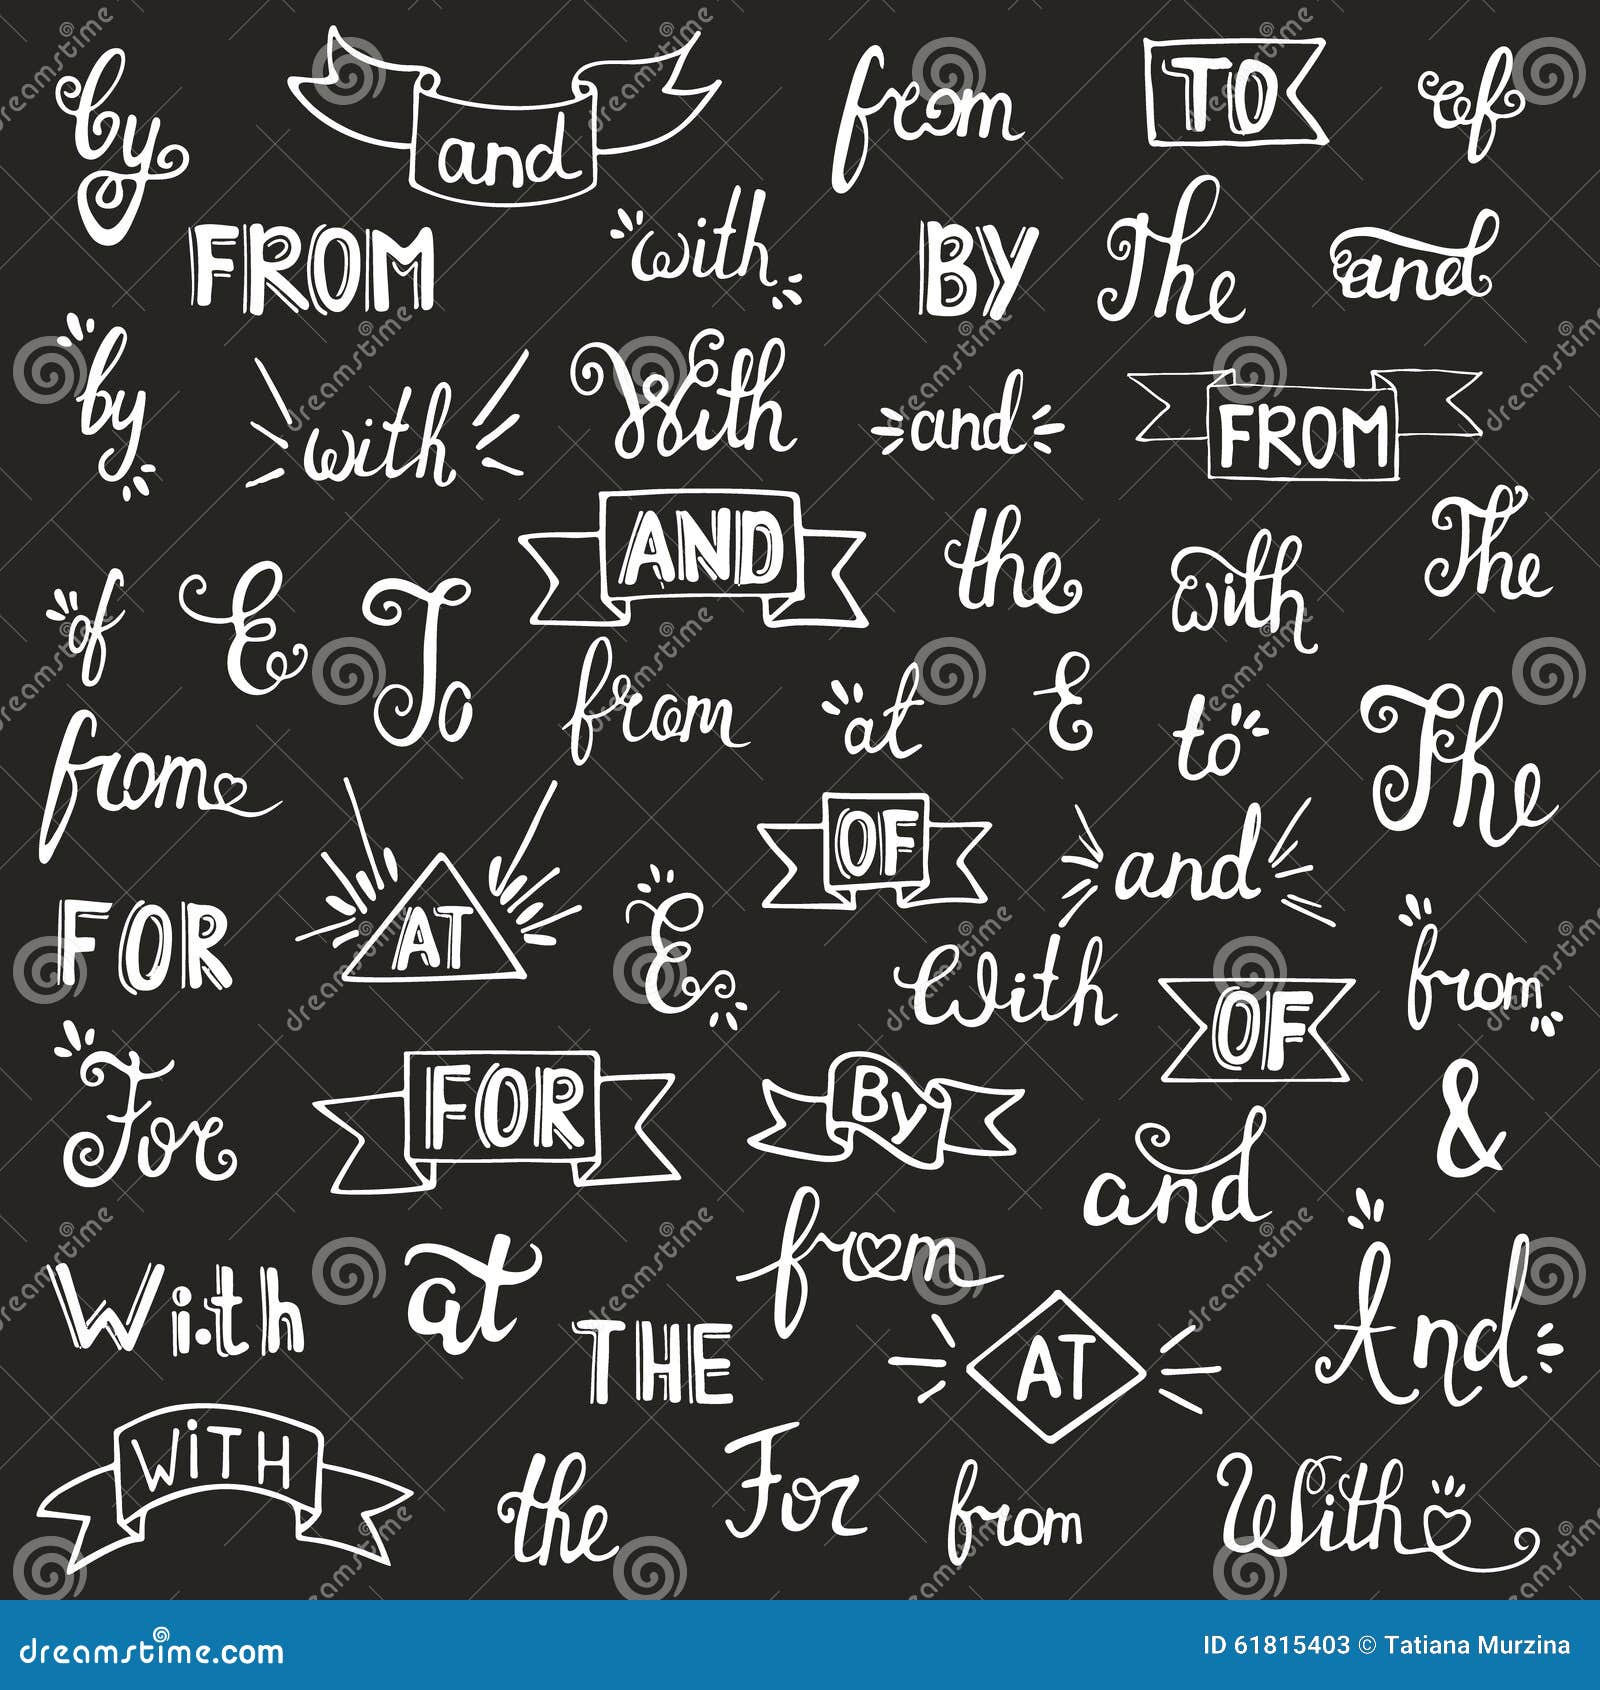 by and from TO of
FROM with BY The and
by with With and FROM
AND the with The
of & To from at & to The
from OF and
FOR AT & With OF from
For FOR By and &
With at from And
THE AT
WiTH the For from With
dreamstime.com ID 61815403 © Tatiana Murzina